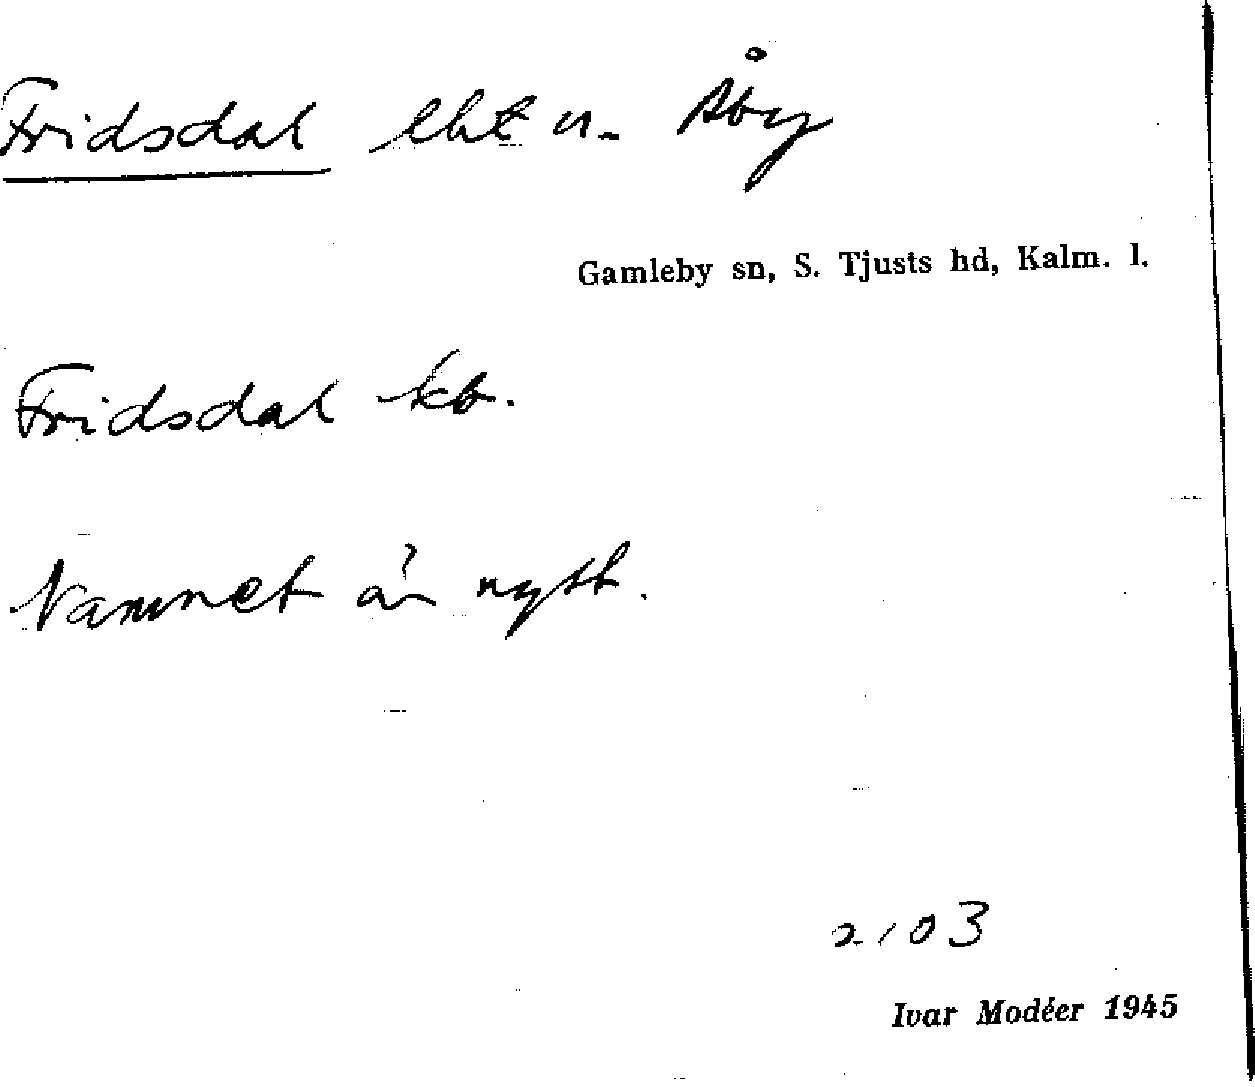 Fridsdal lht u. Åby
Gamleby sn, S. Tjusts hd, Kalm. l.
Fridsdal kb.
Namnet är nytt.
2103
Ivar Modéer 1945